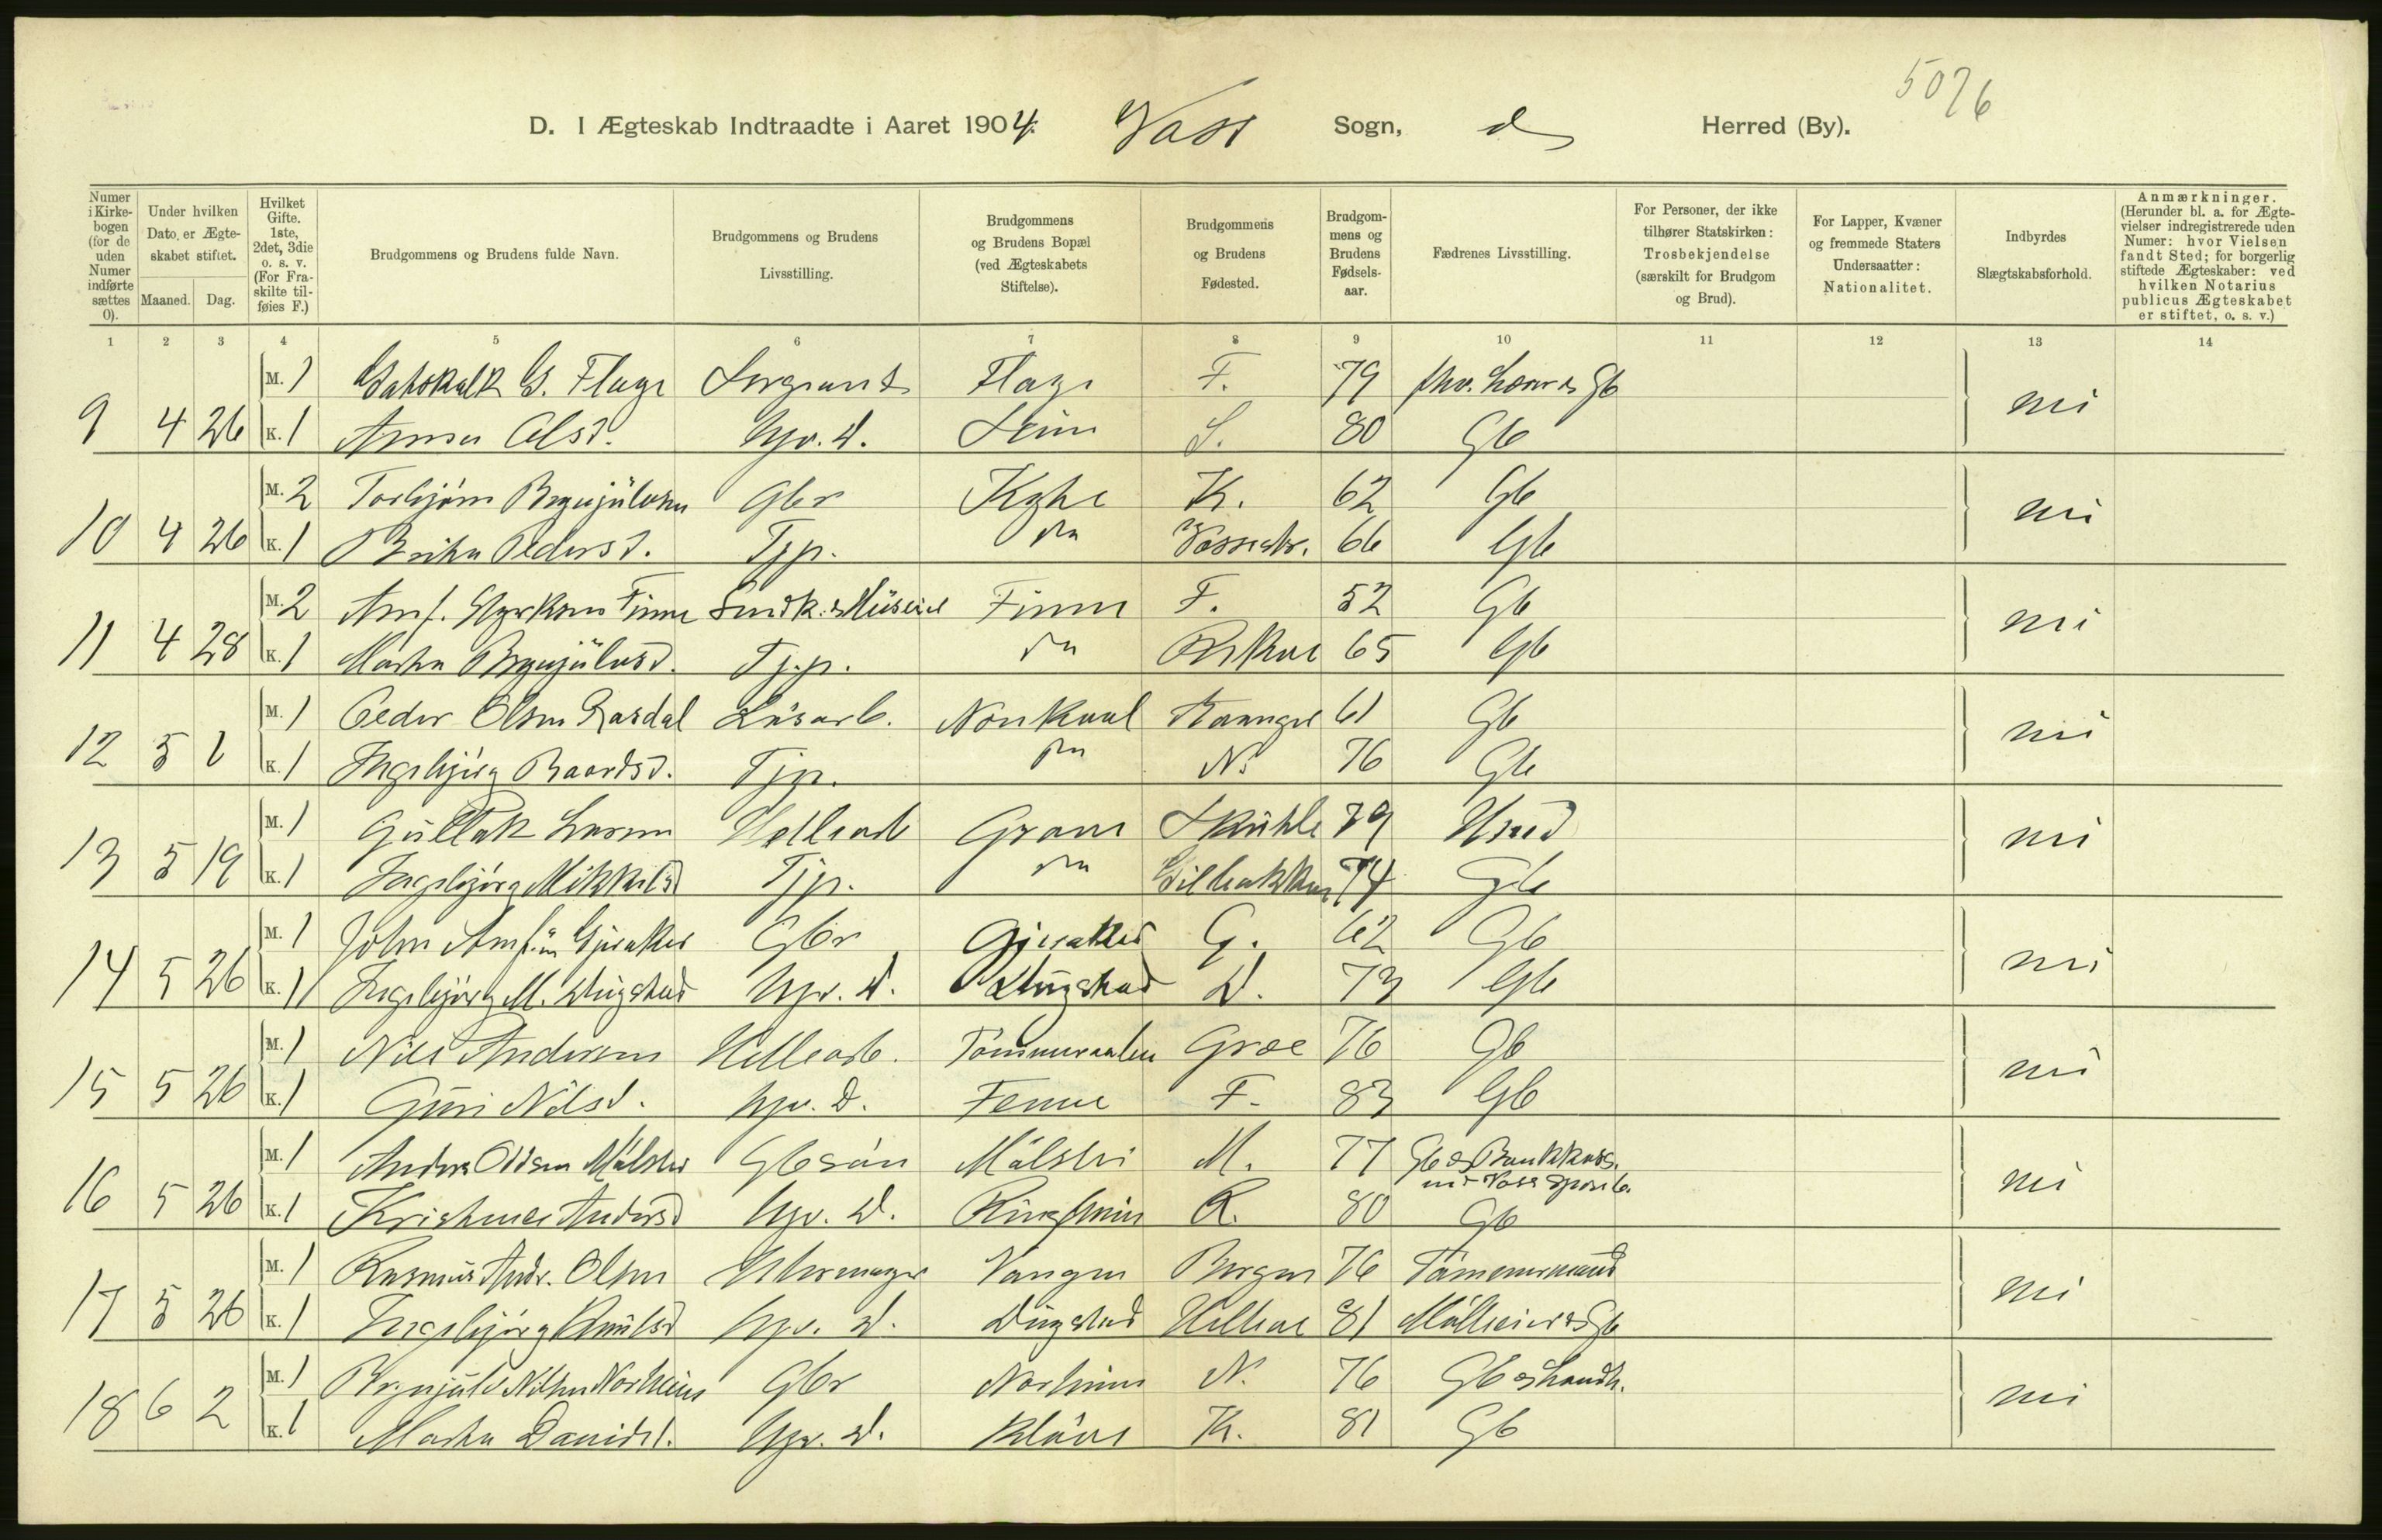 5076
D. I Ægteskab Indtraadte i Aaret 1904. Voss Sogn, do Herred (By).
Numer i Kirkebogen (for de uden Numer indførte sættes 0).
Under hvilken Dato er Ægteskabet stiftet.
Maaned. Dag.
Hvilket Gifte. 1ste, 2det, 3die o. s. v. (For Fraskilte tilføies F.)
Brudgommens og Brudens fulde Navn.
Brudgommens og Brudens Livsstilling.
Brudgommens og Brudens Bopæl (ved Ægteskabets Stiftelse).
Brudgommens og Brudens Fødested.
Brudgommens og Brudens Fødselsaar.
Fædrenes Livsstilling.
For Personer, der ikke tilhører Statskirken: Trosbekjendelse (særskilt for Brudgom og Brud).
For Lapper, Kvæner og fremmede Staters Undersaatter: Nationalitet.
Indbyrdes Slægtskabsforhold.
Anmærkninger. (Herunder bl. a. for Ægtevielser indregistrerede uden Numer: hvor Vielsen fandt Sted; for borgerlig stiftede Ægteskaber: ved hvilken Notarius publicus Ægteskabet er stiftet, o. s. v.)
1 2 3 4 5 6 7 8 9 10 11 12 13 14
M. 1 G. Flage Sergeant Flage F. 79 Gb
9 4 26 K. 1 Anna Olsd. Hv. D. S. 80 Gb nei
M. 2 Torbjørn Brynjülvsen Gbr Kyte K. 62 Gb
10 4 26 K. 1 Brita Pedersd. Tjp. do Vossestr. 66 Gb nei
M. 2 Arnf. Styrksen Finne Finne F. 52 Gb
11 4 28 K. 1 Marta Brynjülvsd. Tjp. do 65 Gb nei
M. 1 Peder Olsen Rasdal Løsarb. 61 Gb
12 5 1 K. 1 Ingebjørg Baardsd. Tjp. do N. 76 Gb nei
M. 1 Güllak Larsen Hellearb Grove 79 Husmd
13 5 19 K. 1 Ingebjørg Mikkelsd Tjp. do 74 Gb nei
M. 1 John Arnf.sen Gjeraker Gbr Gjeraker G. 62 Gb
14 5 26 K. 1 Ingebjørg M. Dügstad Hv. D. Dügstad D. 73 Gb nei
M. 1 Nils Andersen Hellearb. Græe 76 Gb
15 5 26 K. 1 Güri Nilsd. Hv. D. Fenne F. 83 Gb nei
M. 1 Anders Oddsen Mølster Gbsøn Mølster M. 77 Gb og Bankkass. ved Voss Spareb.
16 5 26 K. 1 Kristense Andersd Hv. D. Ringheim R. 80 Gb nei
M. 1 Rasmüs Andr. Olsen Uhrmager Vangen Bergen 76 Tømmermand
17 5 26 K. 1 Ingebjørg Knütsd Hv. D. Dügstad 81 Møller og Gb nei
M. 1 Brynjülv Nilsen Norheim Gbr Norheim N. 76 Gb og handh.
18 6 2 K. 1 Marta Danielsd. Hv. D. Kløve K. 81 Gb nei